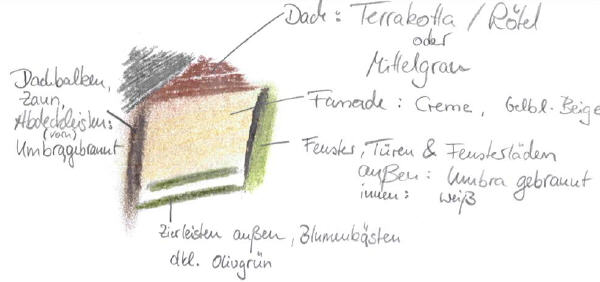 Dach: Terrakotta / Rötel
oder
Mittelgrau
Dachbalken,
Zaun,
Abdeckleisten:
(vorn)
Umbragebrannt
Fassade: Creme, Gelbl. Beige
Fenster, Türen & Fensterläden
außen: Umbra gebrannt
innen: weiß
Zierleisten außen, Blumenkästen
dkl. Olivgrün